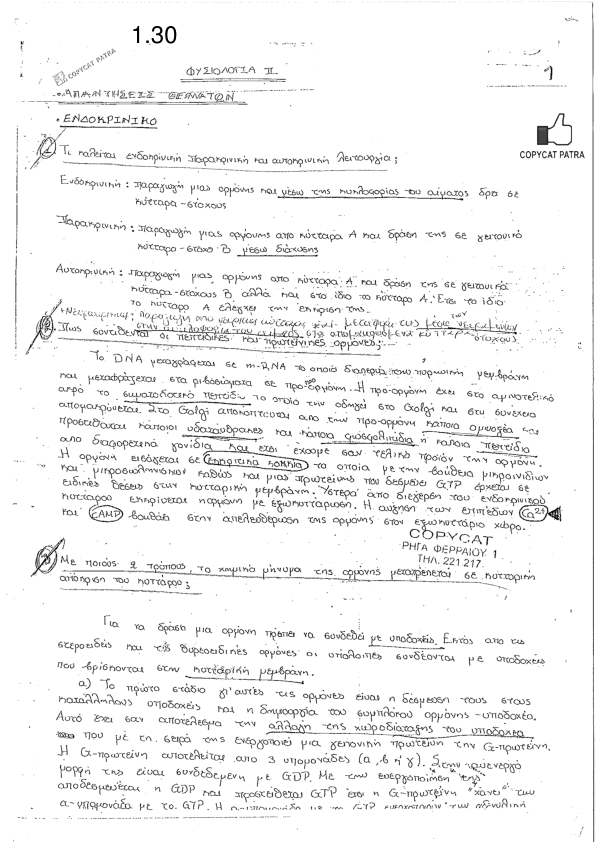 1.30
COPYCAT PATRA
ΦΥΣΙΟΛΟΓΙΑ II
1
• ΑΠΑΝΤΗΣΕΙΣ ΘΕΜΑΤΩΝ
• ΕΝΔΟΚΡΙΝΙΚΟ
COPYCAT PATRA
1 Τι καλείται ενδοκρινική παρακρινική και αυτοκρινική λειτουργία;
Ενδοκρινική: παραγωγή μιας ορμόνης και μέσω της κυκλοφορίας του αίματος δρα σε
κύτταρα-στόχους
Παρακρινική: Παραγωγή μιας ορμόνης απο κύτταρα Α και δράση της σε γειτονικό
κύτταρο-στόχο Β μέσω διάχυσης
Αυτοκρινική: Παραγωγή μιας ορμόνης απο κύτταρα Α και δράση της σε γειτονικά
κύτταρα-στόχους Β αλλά και στο ίδιο το κύτταρο Α. Έτσι το ίδιο
το κύτταρο Α ελέγχει την έκκριση της.
2 Πως συντίθενται οι πεπτιδικές και πρωτεϊνικές ορμόνες;
Το DNA μεταγράφεται σε m-RNA το οποίο διαπερνά την πυρηνική μεμβράνη
και μεταφράζεται στα ριβοσώματα σε προ-ορμόνη. Η προ-ορμόνη έχει στο αμινοτελικό
άκρο το σηματοδοτικό πεπτίδιο το οποίο την οδηγεί στο Golgi και στη συνέχεια
απομακρύνεται. Στο Golgi αποκόπτονται απο την προ-ορμόνη κάποια αμινοξέα και
προστίθενται κάποιοι υδατάνθρακες και κάποια φωσφολιπίδια ή κάποια πεπτίδια
απο διαφορετικά γονίδια και έτσι έχουμε σαν τελικό προϊόν την ορμόνη.
Η ορμόνη εισάγεται σε εκκριτικά κοκκία τα οποία με την βοήθεια μικροϊνιδίων
και μικροσωληνίσκων καθώς και μιας πρωτεΐνης που δεσμεύει GTP έρχεται σε
ειδικές θέσεις στην κυτταρική μεμβράνη. Ύστερα απο διέγερση του ενδοκρινικού
κυττάρου εκκρίνεται η ορμόνη με εξωκυττάρωση. Η αύξηση των επιπέδων Ca²⁺
και cAMP βοηθάει στην απελευθέρωση της ορμόνης στον εξωκυττάριο χώρο.
COPYCAT
ΡΗΓΑ ΦΕΡΡΑΙΟΥ 1
ΤΗΛ. 221 217
3 Με ποιους 2 τρόπους το χημικό μήνυμα της ορμόνης μετατρέπεται σε κυτταρική
απόκριση του κυττάρου;
Για να δράσει μια ορμόνη πρέπει να συνδεθεί με υποδοχείς. Εκτός απο τις
στεροειδείς και τις θυρεοειδικές ορμόνες οι υπόλοιπες συνδέονται με υποδοχείς
που βρίσκονται στην κυτταρική μεμβράνη.
α) Το πρώτο στάδιο γι' αυτές τις ορμόνες είναι η δέσμευση τους στους
κατάλληλους υποδοχείς και η δημιουργία του συμπλόκου ορμόνης-υποδοχέα.
Αυτό έχει σαν αποτέλεσμα την αλλαγή της χωροδιάταξης του υποδοχέα
που με τη σειρά της ενεργοποιεί μια γειτονική πρωτεΐνη την G-πρωτεΐνη.
Η G-πρωτεΐνη αποτελείται απο 3 υπομονάδες (α, β ή γ). Στην ανενεργό
μορφή της είναι συνδεδεμένη με GDP. Με την ενεργοποίηση της
αποδεσμεύεται η GDP και προστίθεται GTP έτσι η G-πρωτεΐνη "χάνει" την
α-υπομονάδα με το GTP.